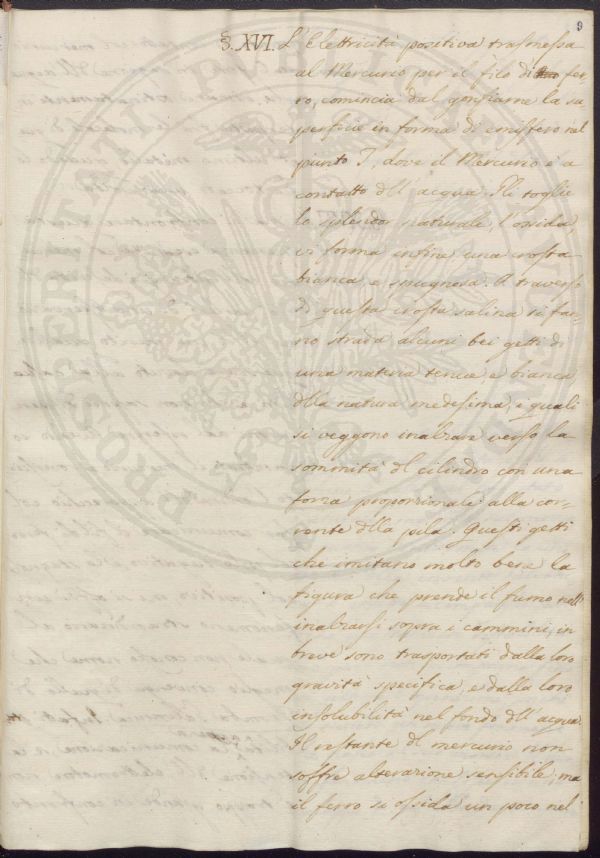 9
§. XVI. L'Elettricità positiva trasmessa
al Mercurio per il filo di fer¬
ro, comincia dal gonfiarne la su
perficie in forma di emisfero nel
punto T, dove il Mercurio è a
contatto dll'acqua. Gli toglie
lo splendor naturale, l'ossida,
vi forma infine una crosta
bianca e spugnosa. A traverso
di questa crosta salina si fan¬
no strada alcuni bei getti di
una materia tenue e bianca
dlla natura medesima, i quali
si veggono inalzare verso la
sommità dl cilindro con una
forza proporzionale alla cor¬
rente dlla pila. Questi getti
che imitano molto bene la
figura che prende il fumo nell'
inalzarsi sopra i cammini, in
breve sono trasportati dalla loro
gravità specifica, e dalla loro
insolubilità nel fondo dll'acqua.
Il restante dl mercurio non
soffre alterazione sensibile, ma
il ferro si ossida un poco nel
PROSPERITATI PUBLICAE AUGENDAE